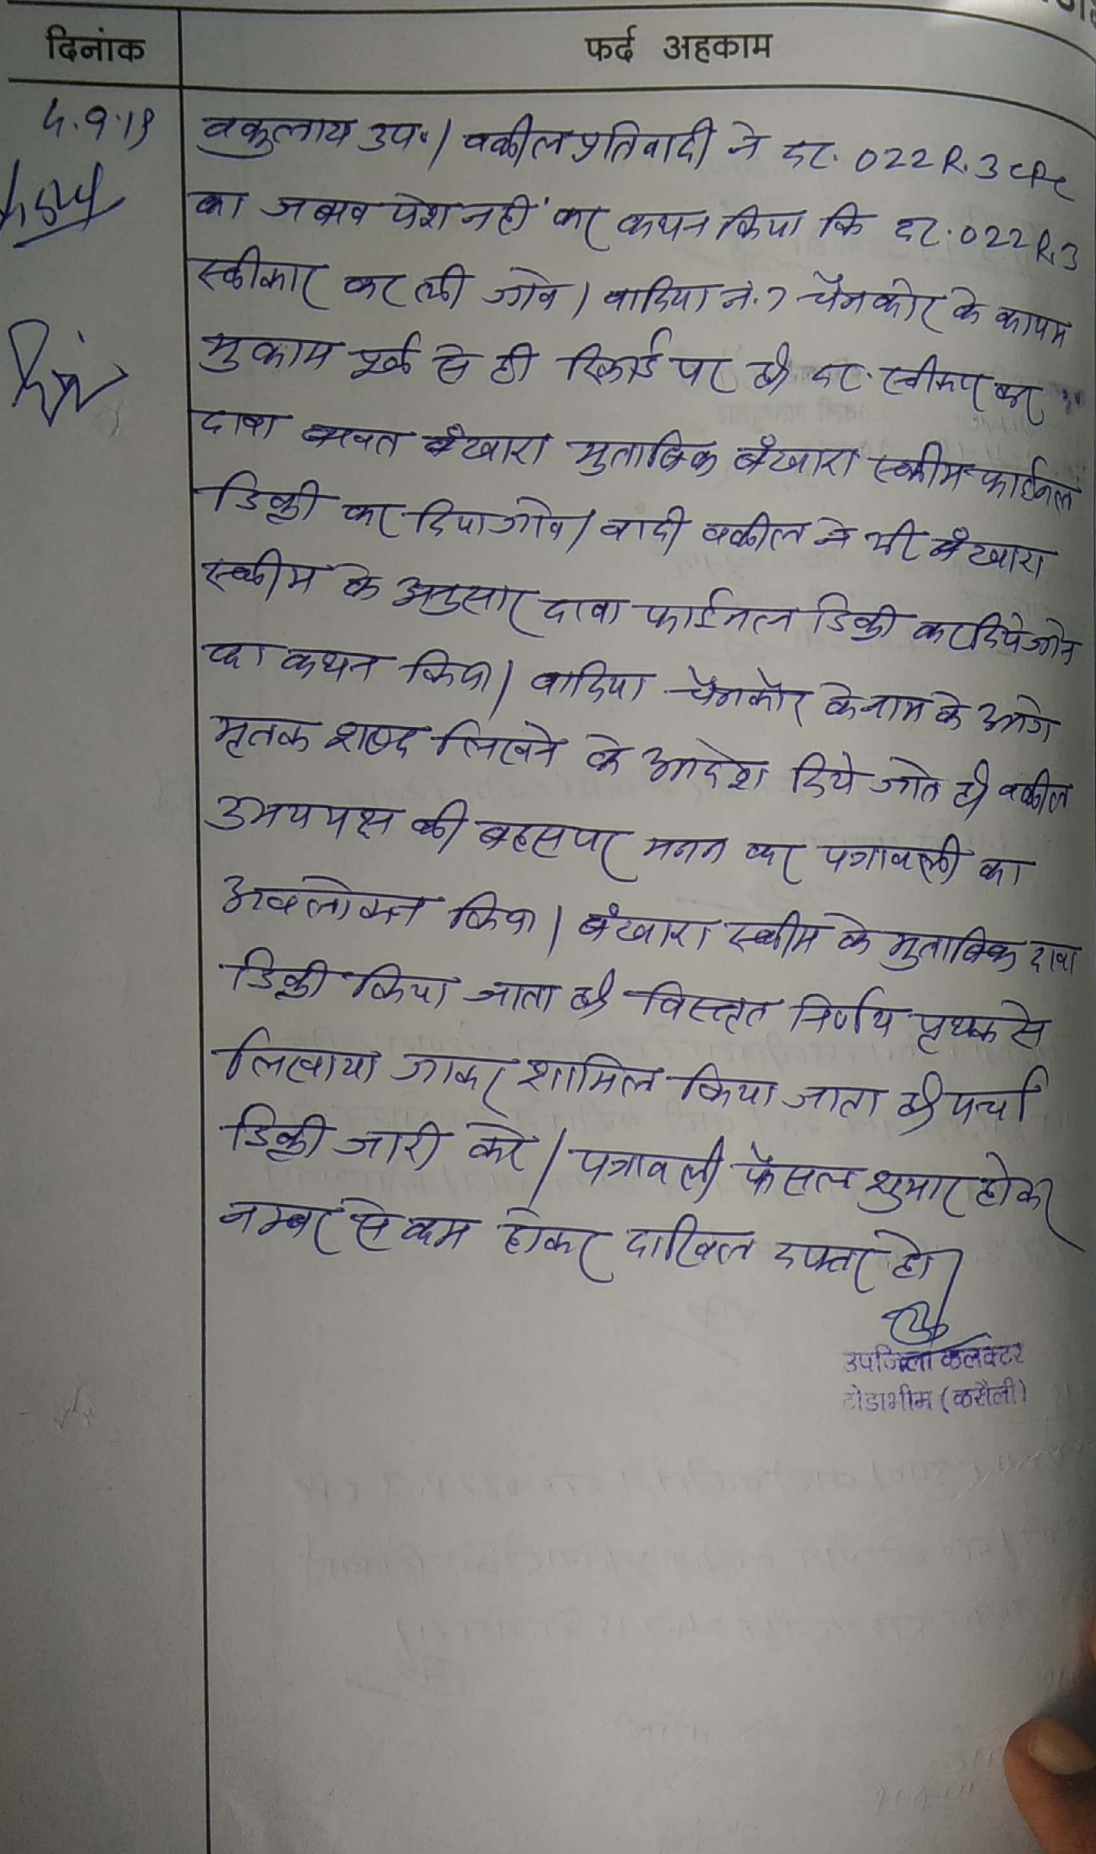 दिनांक
फर्द अहकाम
4.9.19
वकुलाय उप॰। वकील प्रतिवादी ने दर. O22 R.3 CPC
का जबाव पेश नहीं कर कथन किया कि दर. O22 R.3
स्वीकार कर ली जावे। वादिया नं. 7 चैनकोर के कायम
मुकाम पूर्व से ही रिकार्ड पर है दर. स्वीकार कर
दावा बावत बँखारा मुताबिक बँखारा स्कीम फाईनल
डिक्री कर दिया जावे। वादी वकील ने भी बँखारा
स्कीम के अनुसार दावा फाईनल डिक्री कर दिये जाने
का कथन किया। वादिया चैनकोर के नाम के आगे
मृतक शब्द लिखने के आदेश दिये जाते है वकील
उभयपक्ष की बहस पर मनन कर पत्रावली का
अवलोकन किया। बंखारा स्कीम के मुताबिक दावा
डिक्री किया जाता है विस्तृत निर्णय पृथक से
लिखाया जाकर शामिल किया जाता है पर्चा
डिक्री जारी करे। पत्रावली फैसल शुमार होकर
नम्बर से कम होकर दाखिल दफ्तर हो।
उपजिला कलक्टर
टोडाभीम (करौली)